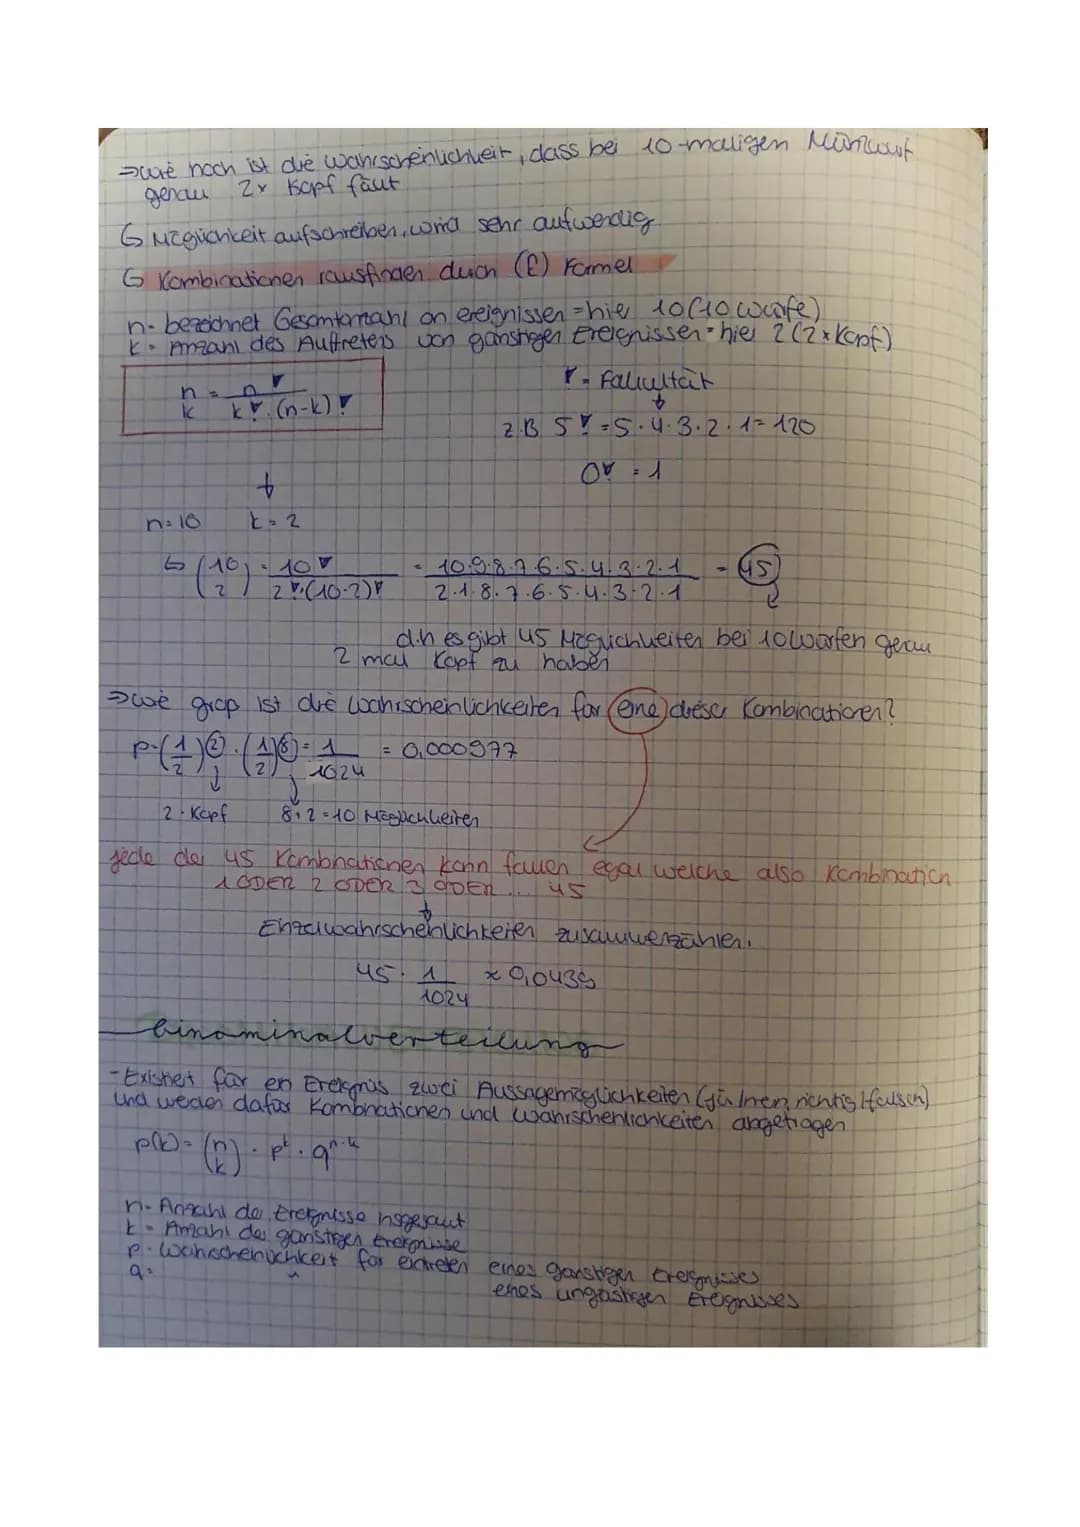 ⇒ wie hoch ist die Wahrscheinlichkeit, dass bei 10-maligen Münzwurf
genau 2x Kopf fällt
↳ Möglichkeit aufschreiben, wird sehr aufwendig
↳ Kombinationen rausfinden durch Formel
n = bezeichnet Gesamtanzahl an ereignissen = hier 10 (10 Würfe)
k = Anzahl des Auftretens von günstigen Ereignissen = hier 2 (2x Kopf)
n/k = n! / k! · (n-k)!
! = Fakultät
↓
z.B 5! = 5·4·3·2·1 = 120
0! = 1
↓
n=10 k=2
↳ (10 2) = 10! / 2!·(10-2)! = 10·9·8·7·6·5·4·3·2·1 / 2·1·8·7·6·5·4·3·2·1 = 45
d.h es gibt 45 Möglichkeiten bei 10 Würfen genau
2 mal Kopf zu haben
⇒ wie groß ist die Wahrscheinlichkeiten für eine dieser Kombinationen?
p = (1/2)² · (1/2)⁸ = 1/1024 = 0,000977
2 · Kopf 8+2=10 Möglichkeiten
jede der 45 Kombinationen kann fallen egal welche also Kombination
1 ODER 2 ODER 3 ODER ... 45
↓
Einzelwahrscheinlichkeiten zusammenzählen.
45 · 1/1024 ≈ 0,0439
binominalverteilung
- Existiert für ein Ereignis zwei Aussagemöglichkeiten richtig/falsch)
und werden dafür Kombinationen und Wahrscheinlichkeiten abgetragen
p(k) = (n k) · p^k · q^n-k
n = Anzahl der Ereignisse insgesamt
k = Anzahl der günstigen Ereignisse
p = Wahrscheinlichkeit für eintreten eines günstigen Ereignisses
q = " eines ungünstigen Ereignisses